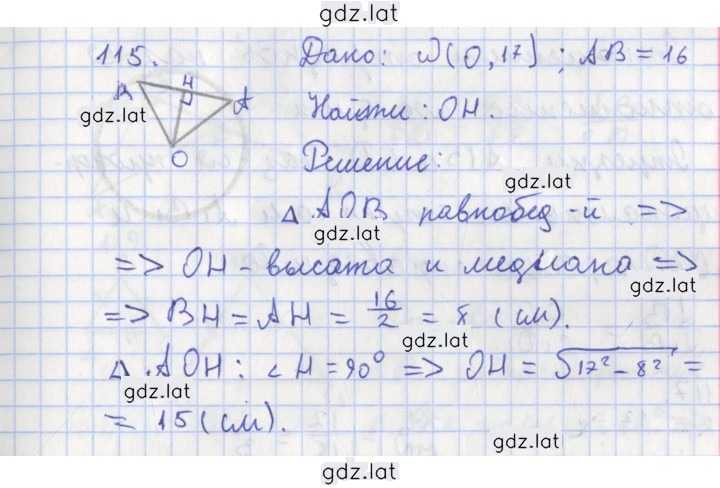 gdz.lat
115. Дано: ω(O,17); AB = 16
B H A O
gdz.lat
Найти: OH.
Решение:
gdz.lat
Δ AOB равнобед-й =>
gdz.lat
=> OH - высата и медиана =>
gdz.lat
=> BH = AH = 16/2 = 8 (см).
gdz.lat
Δ AOH: ∠H = 90° => OH = √17² - 8² =
gdz.lat
= 15 (см).
gdz.lat
gdz.lat